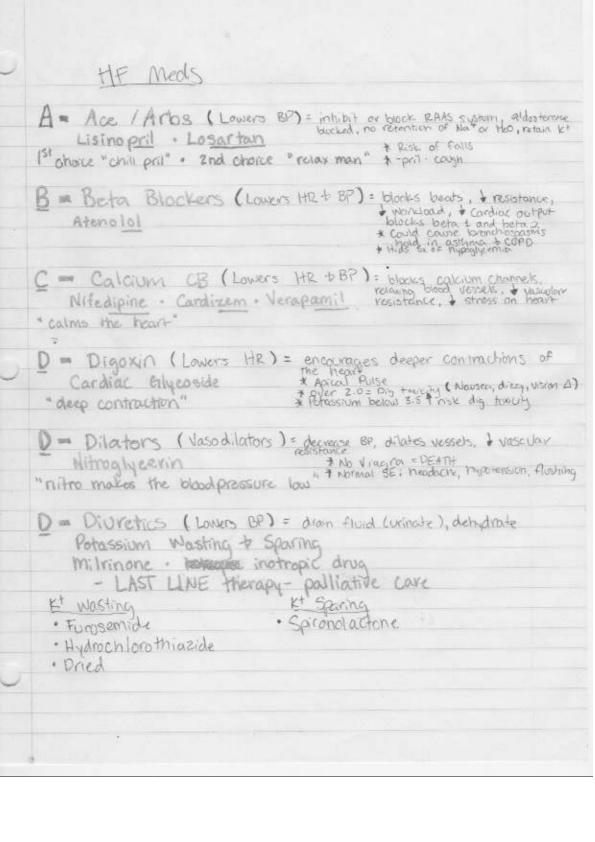 HF Meds
A = Ace / Arbs (Lowers BP) = inhibit or block RAAS system, aldosterone
blocked, no retention of Na+ or H2O, retain K+
Lisinopril • Losartan
* Risk of falls
1st choice "chill pril" • 2nd choice "relax man"
* -pril - cough
B = Beta Blockers (Lowers HR + BP) = blocks beats, ↓ resistance,
↓ workload, ↓ cardiac output
Atenolol
blocks beta 1 and beta 2
* Could cause bronchospasms
held in asthma + COPD
* Hides sx of hypoglycemia
C = Calcium CB (Lowers HR + BP) = blocks calcium channels,
relaxing blood vessels, ↓ vascular
Nifedipine • Cardizem • Verapamil
resistance, ↓ stress on heart
"calms the heart"
D = Digoxin (Lowers HR) = encourages deeper contractions of
the heart
Cardiac Glycoside
* Apical Pulse
* over 2.0 = Dig toxicity (Nausea, dizzy, vision Δ)
"deep contraction"
* Potassium below 3.5 ↑ risk dig. toxicity
D = Dilators (Vasodilators) = decrease BP, dilates vessels, ↓ vascular
resistance
Nitroglycerin
* No Viagra = DEATH
* Normal SE: headache, hypotension, flushing
"nitro makes the blood pressure low"
D = Diuretics (Lowers BP) = drain fluid (urinate), dehydrate
Potassium Wasting + Sparing
Milrinone • inotropic drug
- LAST LINE therapy - palliative care
K+ Wasting
K+ Sparing
• Furosemide
• Spironolactone
• Hydrochlorothiazide
• Dried